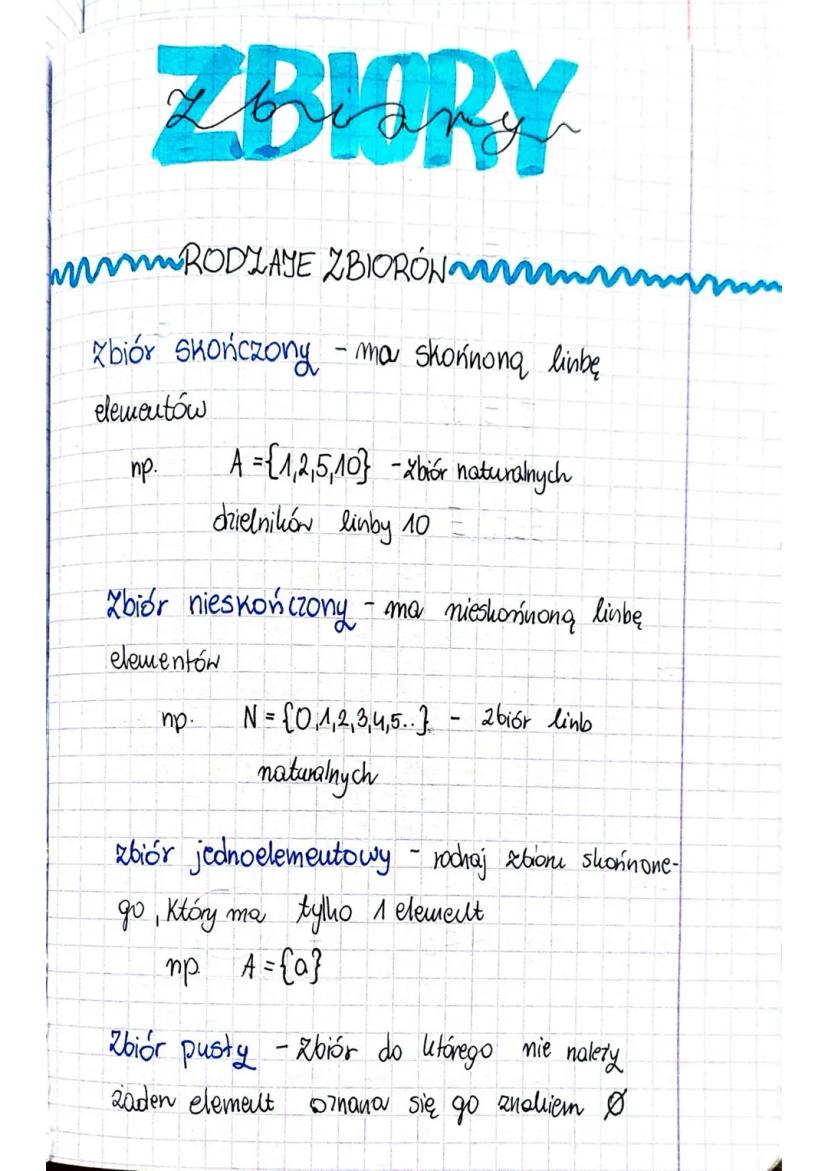 ZBIORY
zbiory
RODZAJE ZBIORÓW
Zbiór skończony - ma skończoną liczbę
elementów
np. A = {1,2,5,10} - zbiór naturalnych
dzielników liczby 10
Zbiór nieskończony - ma nieskończoną liczbę
elementów
np. N = {0,1,2,3,4,5..} - zbiór liczb
naturalnych
zbiór jednoelementowy - rodzaj zbioru skończone-
go, który ma tylko 1 element
np. A = {a}
Zbiór pusty - zbiór do którego nie należy
żaden element oznacza się go znakiem Ø